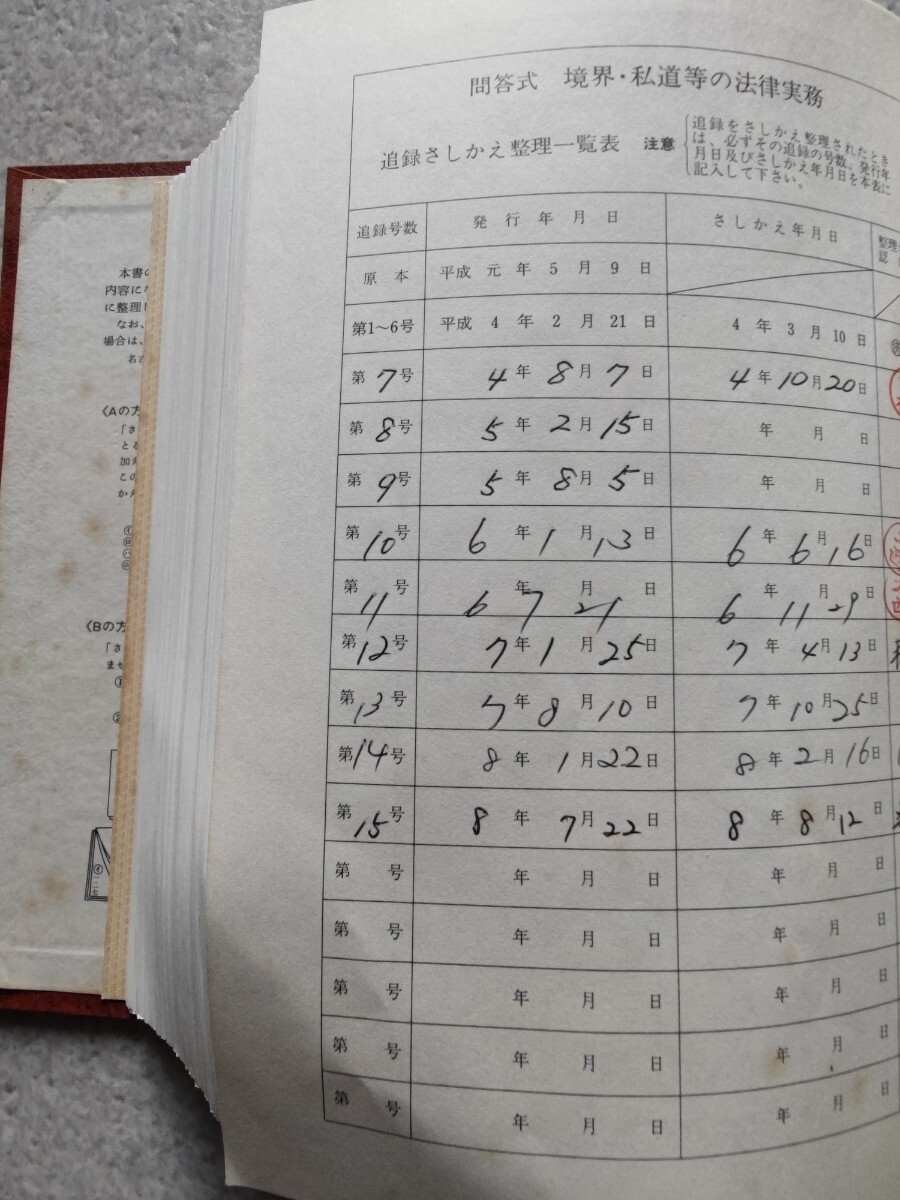 問答式　境界・私道等の法律実務
追録さしかえ整理一覧表　注意
追録をさしかえ整理されたとき
は、必ずその追録の号数、発行年
月日及びさしかえ年月日を本表に
記入して下さい。
追録号数　発行年月日　さしかえ年月日　整理
認
原本　平成元年5月9日
第1～6号　平成4年2月21日　4年3月10日
第7号　4年8月7日　4年10月20日
第8号　5年2月15日　年　月　日
第9号　5年8月5日　年　月　日
第10号　6年1月13日　6年6月16日
第11号　6年7月21日　6年11月29日
第12号　7年1月25日　7年4月13日
第13号　7年8月10日　7年10月25日
第14号　8年1月22日　8年2月16日
第15号　8年7月22日　8年8月12日
第　号　年　月　日　年　月　日
第　号　年　月　日　年　月　日
第　号　年　月　日　年　月　日
第　号　年　月　日　年　月　日
第　号　年　月　日　年　月　日
本書の
内容に
に整理
なお、
場合は、
名古
〈Aの方
「さ
とる
加え
この
かえ
〈Bの方
「さ
ませ
①
②